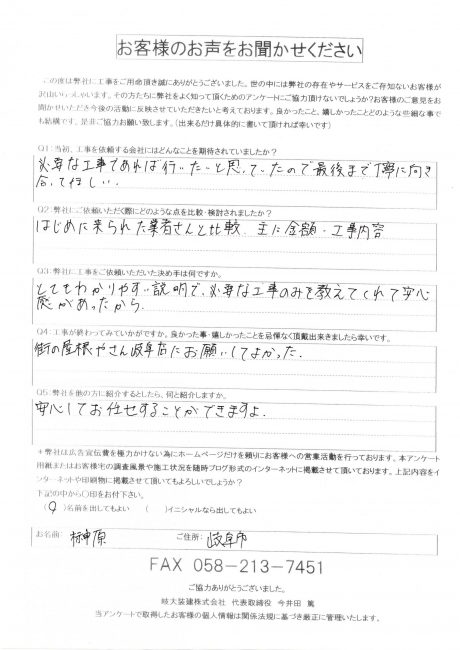 お客様のお声をお聞かせください
この度は弊社に工事をご用命頂き誠にありがとうございました。世の中には弊社の存在やサービスをご存知ないお客様が
沢山いらっしゃいます。その方たちに弊社をよく知って頂くためのアンケートにご協力頂けないでしょうか?お客様のご意見をお
聞かせいただき今後の活動に反映させていただきたいと考えております。良かったこと、嬉しかったことどのような些細な事で
も結構です、是非ご協力お願い致します。(出来るだけ具体的に書いて頂ければ幸いです)
Q1:当初、工事を依頼する会社にはどんなことを期待されていましたか?
必要な工事であれば行いたいと思っていたので最後まで丁寧に向き
合ってほしい.
Q2:弊社にご依頼いただく際にどのような点を比較・検討されましたか?
はじめに来られた業者さんと比較. 主に金額・工事内容
Q3:弊社に工事をご依頼いただいた決め手は何ですか。
とてもわかりやすい説明で、必要な工事のみを教えてくれて安心
感があったから.
Q4:工事が終わってみていかがですか。良かった事・嬉しかったことを忌憚なく頂戴出来きましたら幸いです。
街の屋根やさん岐阜店にお願いしてよかった.
Q5:弊社を他の方に紹介するとしたら、何と紹介しますか。
安心してお任せすることができますよ.
*弊社は広告宣伝費を極力かけない為にホームページだけを頼りにお客様への営業活動を行っております。本アンケート
用紙またはお客様宅の調査風景や施工状況を随時ブログ形式のインターネットに掲載させて頂いております。上記内容をイ
ンターネットや印刷物に掲載させて頂いてもよろしいでしょうか?
下記の中から〇印をお付下さい。
(〇)名前を出してもよい ( )イニシャルなら出してもよい
お名前: 榊原 ご住所: 岐阜市
FAX 058-213-7451
ご協力ありがとうございました。
岐大装建株式会社 代表取締役 今井田 篤
当アンケートで取得したお客様の個人情報は関係法規に基づき厳正に管理いたします。